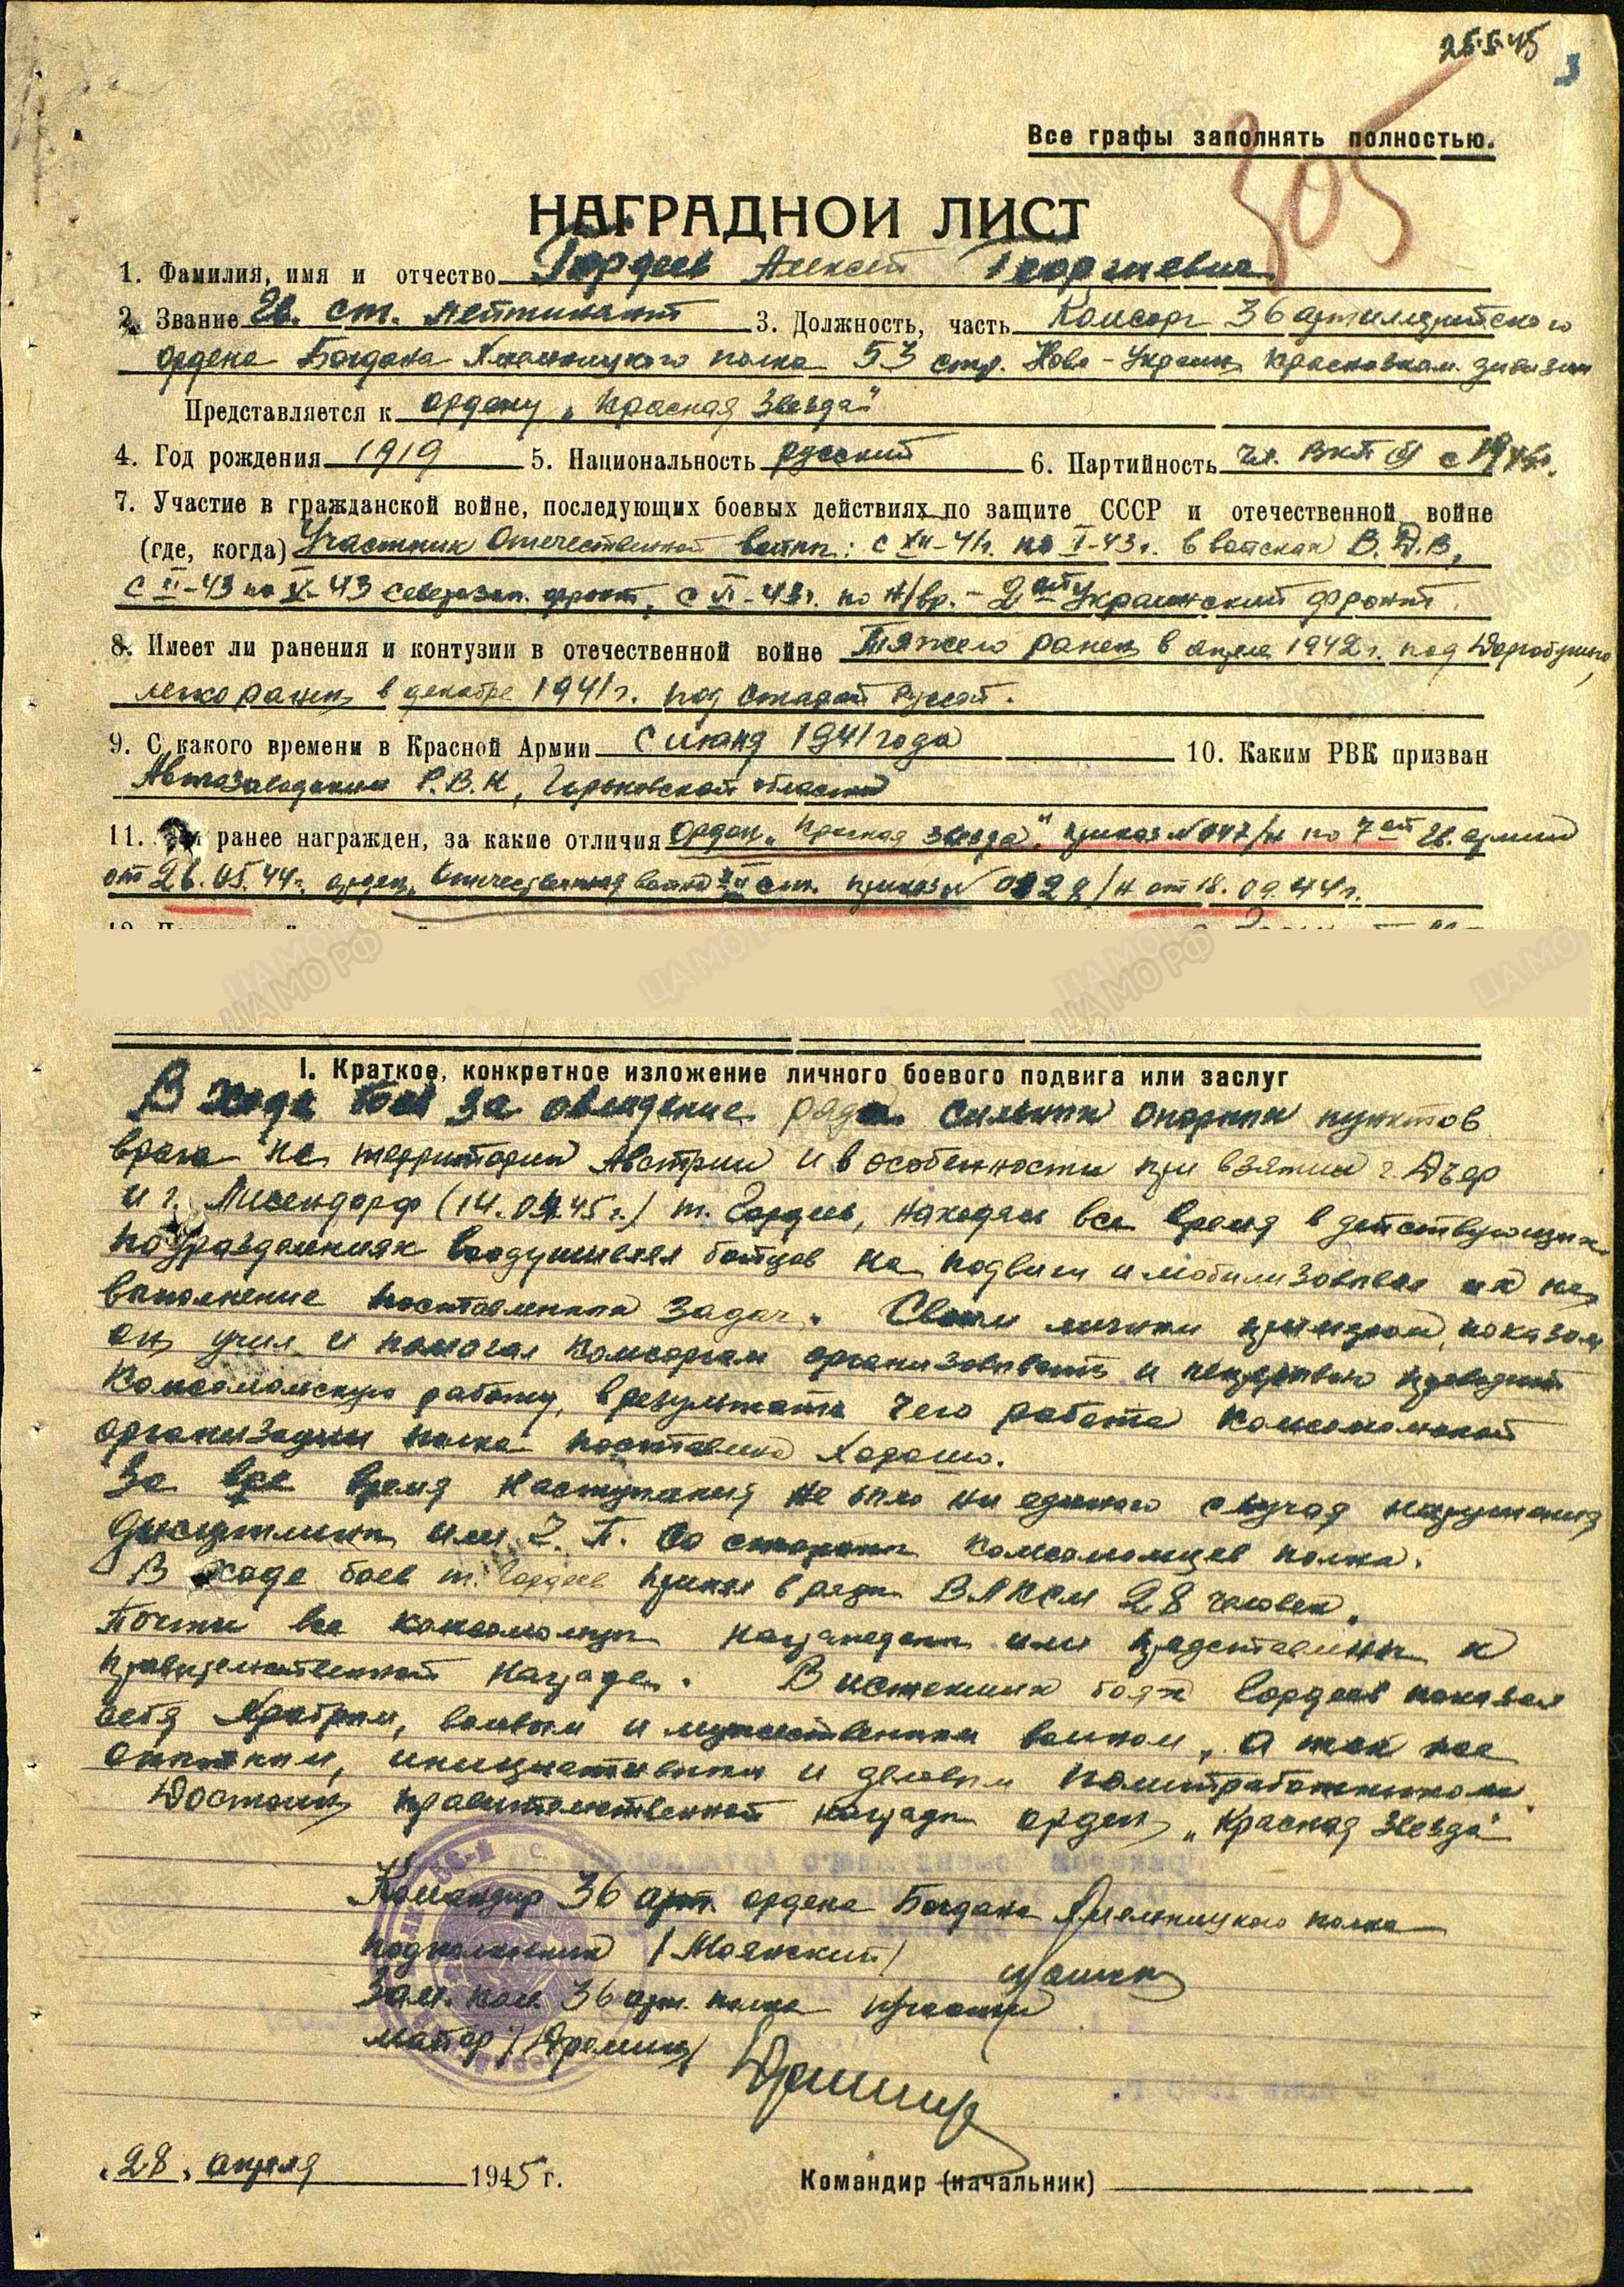 25.5.45
3
305
Все графы заполнять полностью.
НАГРАДНОЙ ЛИСТ
1. Фамилия, имя и отчество Гордеев Алексей Георгиевич
2. Звание Гв. ст. лейтенант 3. Должность, часть Комсорг 36 артиллерийского
ордена Богдана Хмельницкого полка 53 стр. Ново-Украин. Краснознам. дивизии
Представляется к ордену „Красная Звезда"
4. Год рождения 1919 5. Национальность русский 6. Партийность чл. ВКП(б) с
7. Участие в гражданской войне, последующих боевых действиях по защите СССР и отечественной войне
(где, когда) Участник Отечественной войны: с XII-41г. по I-43г. в войсках В.Д.В,
с II-43 по V-43 Северозап. фронт, с VI-43г. по н/вр. - 2ой Украинский фронт.
8. Имеет ли ранения и контузии в отечественной войне Тяжело ранен в апреле 1942г. под Дорогобужью,
легко ранен в декабре 1941г. под Старой Руссой.
9. С какого времени в Красной Армии С июня 1941 года 10. Каким РВК призван
Автозаводским Р.В.К, Горьковской области
11. Чем ранее награжден, за какие отличия Орден „Красная Звезда", приказ №047/н по 7ой Гв. армии
от 26.05.44г. орден „Отечественная война II ст. приказ № /н от 18.09.44г.
I. Краткое, конкретное изложение личного боевого подвига или заслуг
В ходе боев за овладение ряда сильных опорных пунктов
врага на территории Австрии и в особенности при взятии г. Дьер
и г. (14.04.45г.) т. Гордеев, находясь все время в действующих
подразделениях воодушевлял бойцов на подвиги и мобилизовывал их на
выполнение поставленных задач. Своим личным примером, показом
он учил и помогал комсоргам организовывать и непрерывно проводить
комсомольскую работу, в результате чего работа комсомольской
организации полка поставлена хорошо.
За все время наступления не было ни единого случая нарушения
дисциплины или Ч.П. со стороны комсомольцев полка.
В ходе боев т. Гордеев принял в ряды ВЛКСМ 28 человек.
Почти все комсомольцы награждены или представлены к
правительственной награде. В истекших боях Гордеев показал
себя храбрым, волевым и мужественным воином, а так же
опытным, инициативным и деловым политработником.
Достоин правительственной награды орден „Красная Звезда"
Командир 36 арт. ордена Богдана Хмельницкого полка
подполковник /Моянский/
Зам. ком. 36 арт. полка по
майор /Дремин/
„28" апреля 1945 г.
Командир (начальник)
ЦАМО РФ